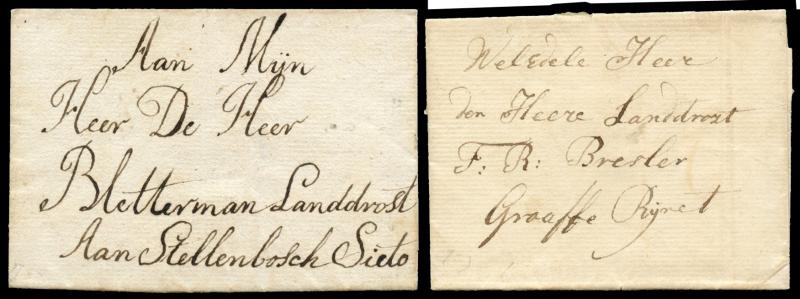 Aan Mijn
Heer De Heer
Bletterman Landdrost
Aan Stellenbosch Sieto
WelEdele Heer
den Heere Landdrost
F: R: Bresler
Graaffe Rijnet